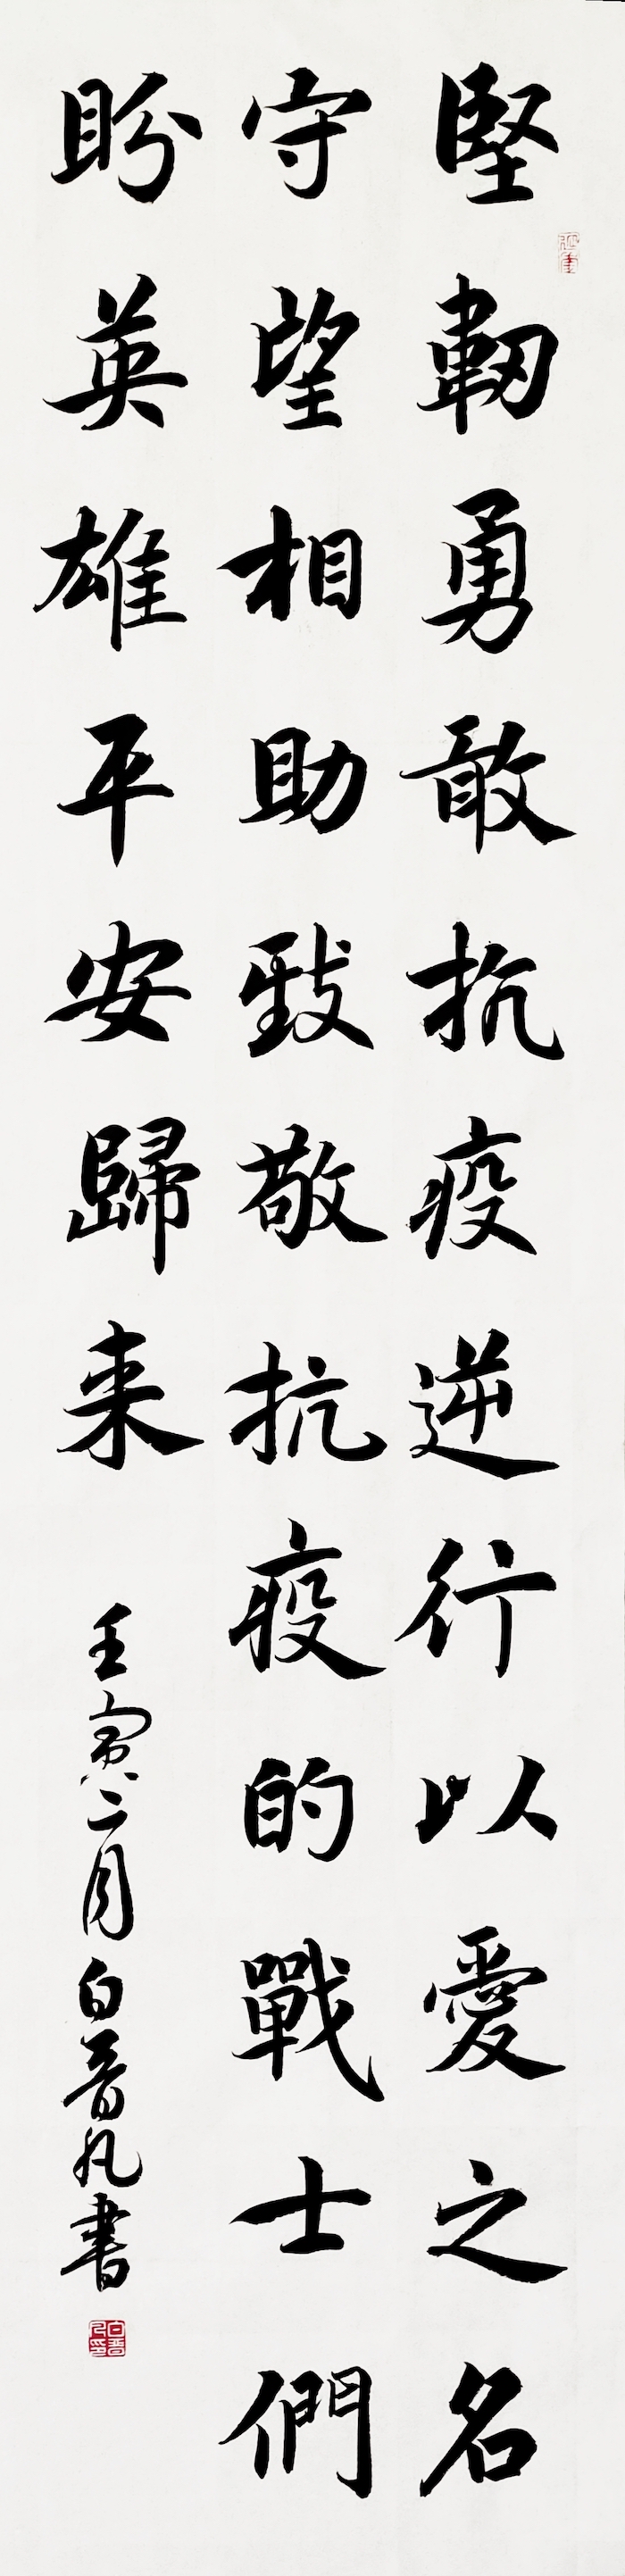 堅韌勇敢抗疫逆行以愛之名
守望相助致敬抗疫的戰士們
盼英雄平安歸来
壬寅二月白晉凡書
白晉凡印